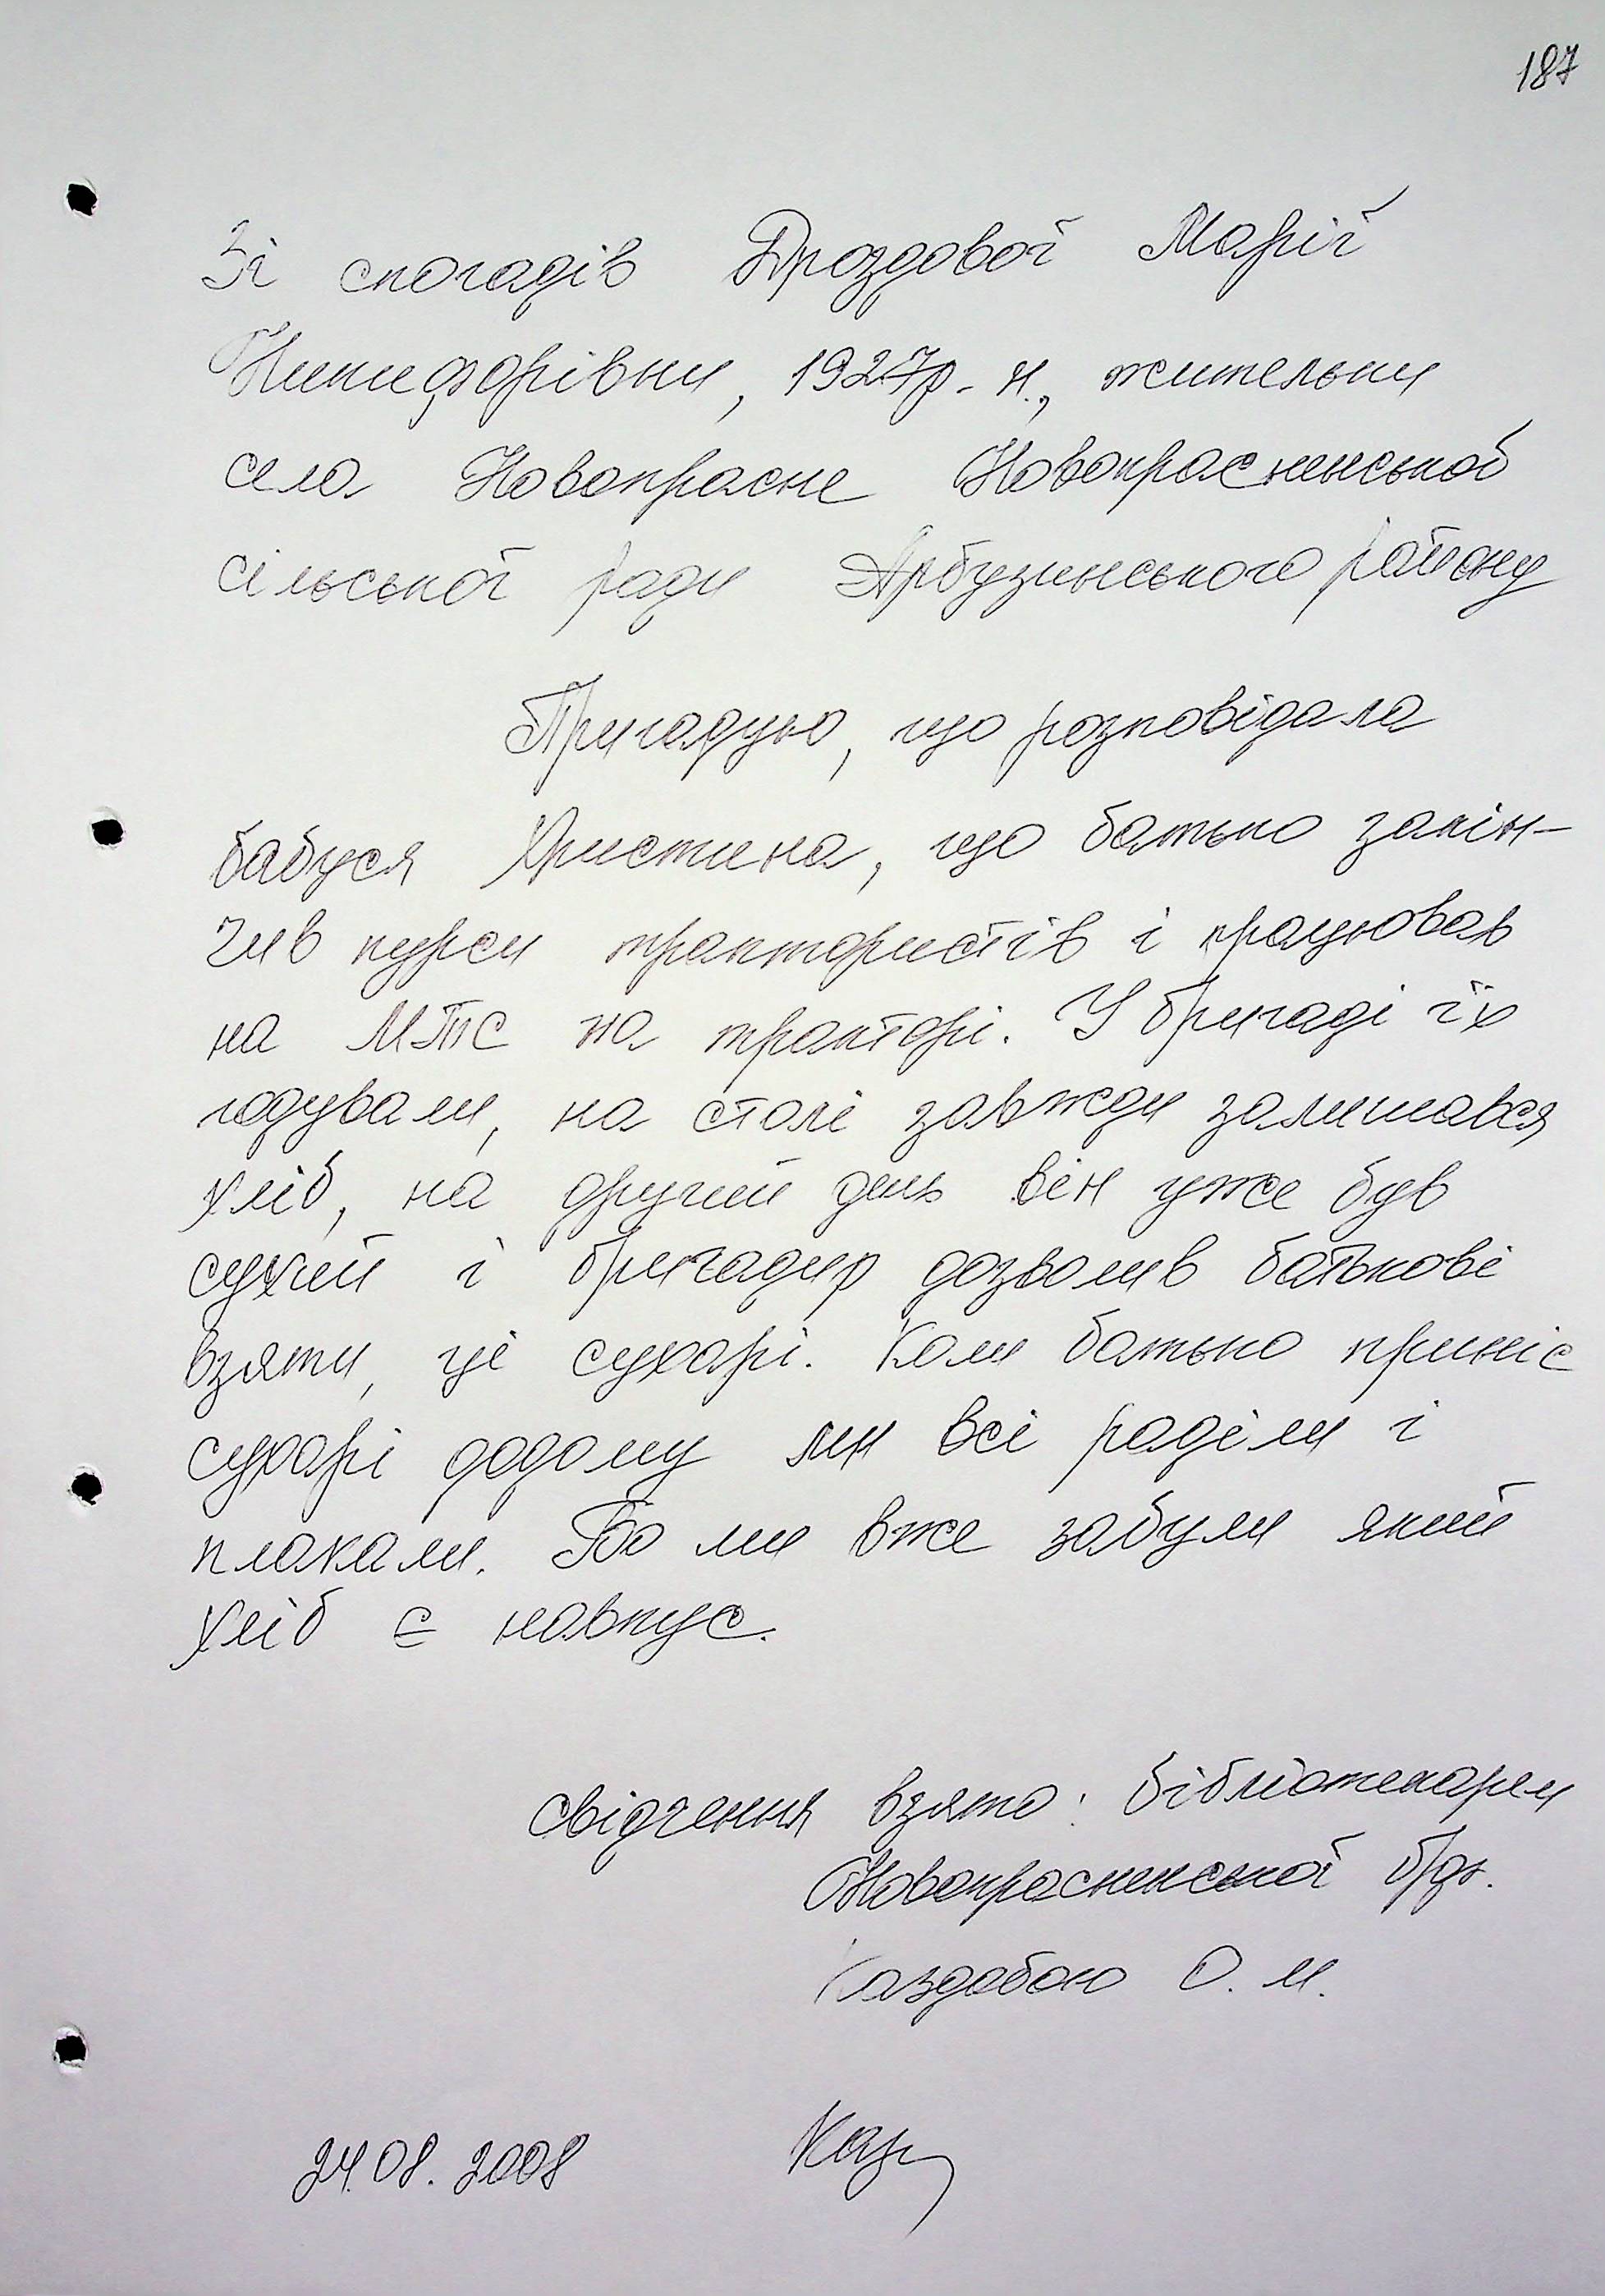 187
Зі спогадів Дроздової Марії
Никифорівни, 1927р. н., жительки
села Новокрасне Новокрасненської
сільської ради Арбузинського району
Пригадую, що розповідала
бабуся Христина, що батько закін-
чив курси трактористів і працював
на МТС на тракторі. У бригаді їх
годували, на столі завжди залишався
хліб, на другий день він уже був
сухий і бригадир дозволив батькові
взяти ці сухарі. Коли батько приніс
сухарі додому ми всі раділи і
плакали. Бо ми вже забули який
хліб є навкус.
свідчення взято: бібліотекарем
Новокрасненської б/ф.
Каздобою О. М.
24.08.2008